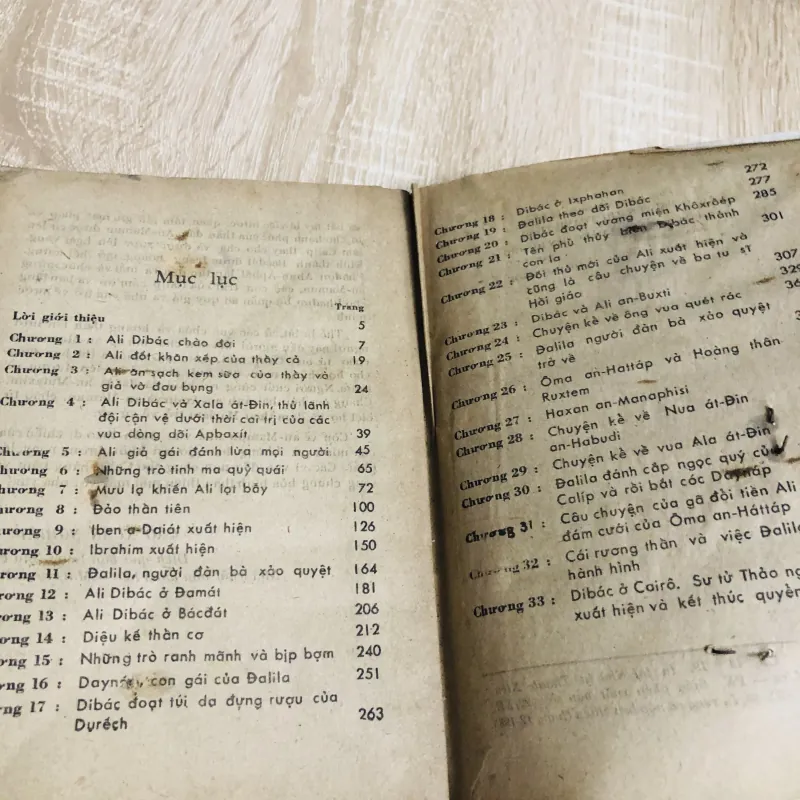 Mục lục
Trang
Lời giới thiệu 5
Chương 1 : Ali Dibác chào đời 7
Chương 2 : Ali đốt khăn xếp của thày cả 19
Chương 3 : Ali ăn sạch kem sữa của thày và
giả vờ đau bụng 24
Chương 4 : Ali Dibác và Xala át-Đin, thủ lãnh
đội cận vệ dưới thời cai trị của các
vua dòng dõi Apbaxít 39
Chương 5 : Ali giả gái đánh lừa mọi người 45
Chương 6 : Những trò tinh ma quỷ quái 65
Chương 7 : Mưu lạ khiến Ali lọt bẫy 72
Chương 8 : Đảo thần tiên 100
Chương 9 : Iben a-Daiát xuất hiện 126
Chương 10 : Ibrahim xuất hiện 150
ương 11 : Đalila, người đàn bà xảo quyệt 164
ương 12 : Ali Dibác ở Đamát 181
ương 13 : Ali Dibác ở Bácđát 206
ương 14 : Diệu kế thần cơ 212
ơng 15 : Những trò ranh mãnh và bịp bợm 240
ơng 16 : con gái của Đalila 251
ng 17 : Dibác đoạt túi da đựng rượu của
Dyrếch 263
Chương 18 : Dibác ở Ixphahan 272
Chương 19 : Đalila theo dõi Dibác 277
Chương 20 : Dibác đoạt vương miện Khôxrôép 285
Chương 21 : Tên phù thủy biến Dibác thành
con la 301
Chương 22 : Đối thủ mới của Ali xuất hiện và
cũng là câu chuyện về ba tu sĩ
Hồi giáo 307
Chương 23 : Dibác và Ali an-Buxti 329
Chương 24 : Chuyện kể về ông vua quét rác
Chương 25 : Đalila người đàn bà xảo quyệt
trở về
Chương 26 : Ôma an-Hattáp và Hoàng thân
Ruxtem
Chương 27 : Haxan an-Manaphisi
Chương 28 : Chuyện kể về Nua át-Đin
an-Habudi
Chương 29 : Chuyện kể về vua Ala át-Đin
Chương 30 : Đalila đánh cắp ngọc quý của
Calíp và rồi bắt cóc
Chương 31 : Câu chuyện của gã đổi tiền Ali
đám cưới của Ôma an-Háttáp
Chương 32 : Cái rương thần và việc Đalila
hành hình
Chương 33 : Dibác ở Cairô. Sư tử Thảo
xuất hiện và kết thúc quyền